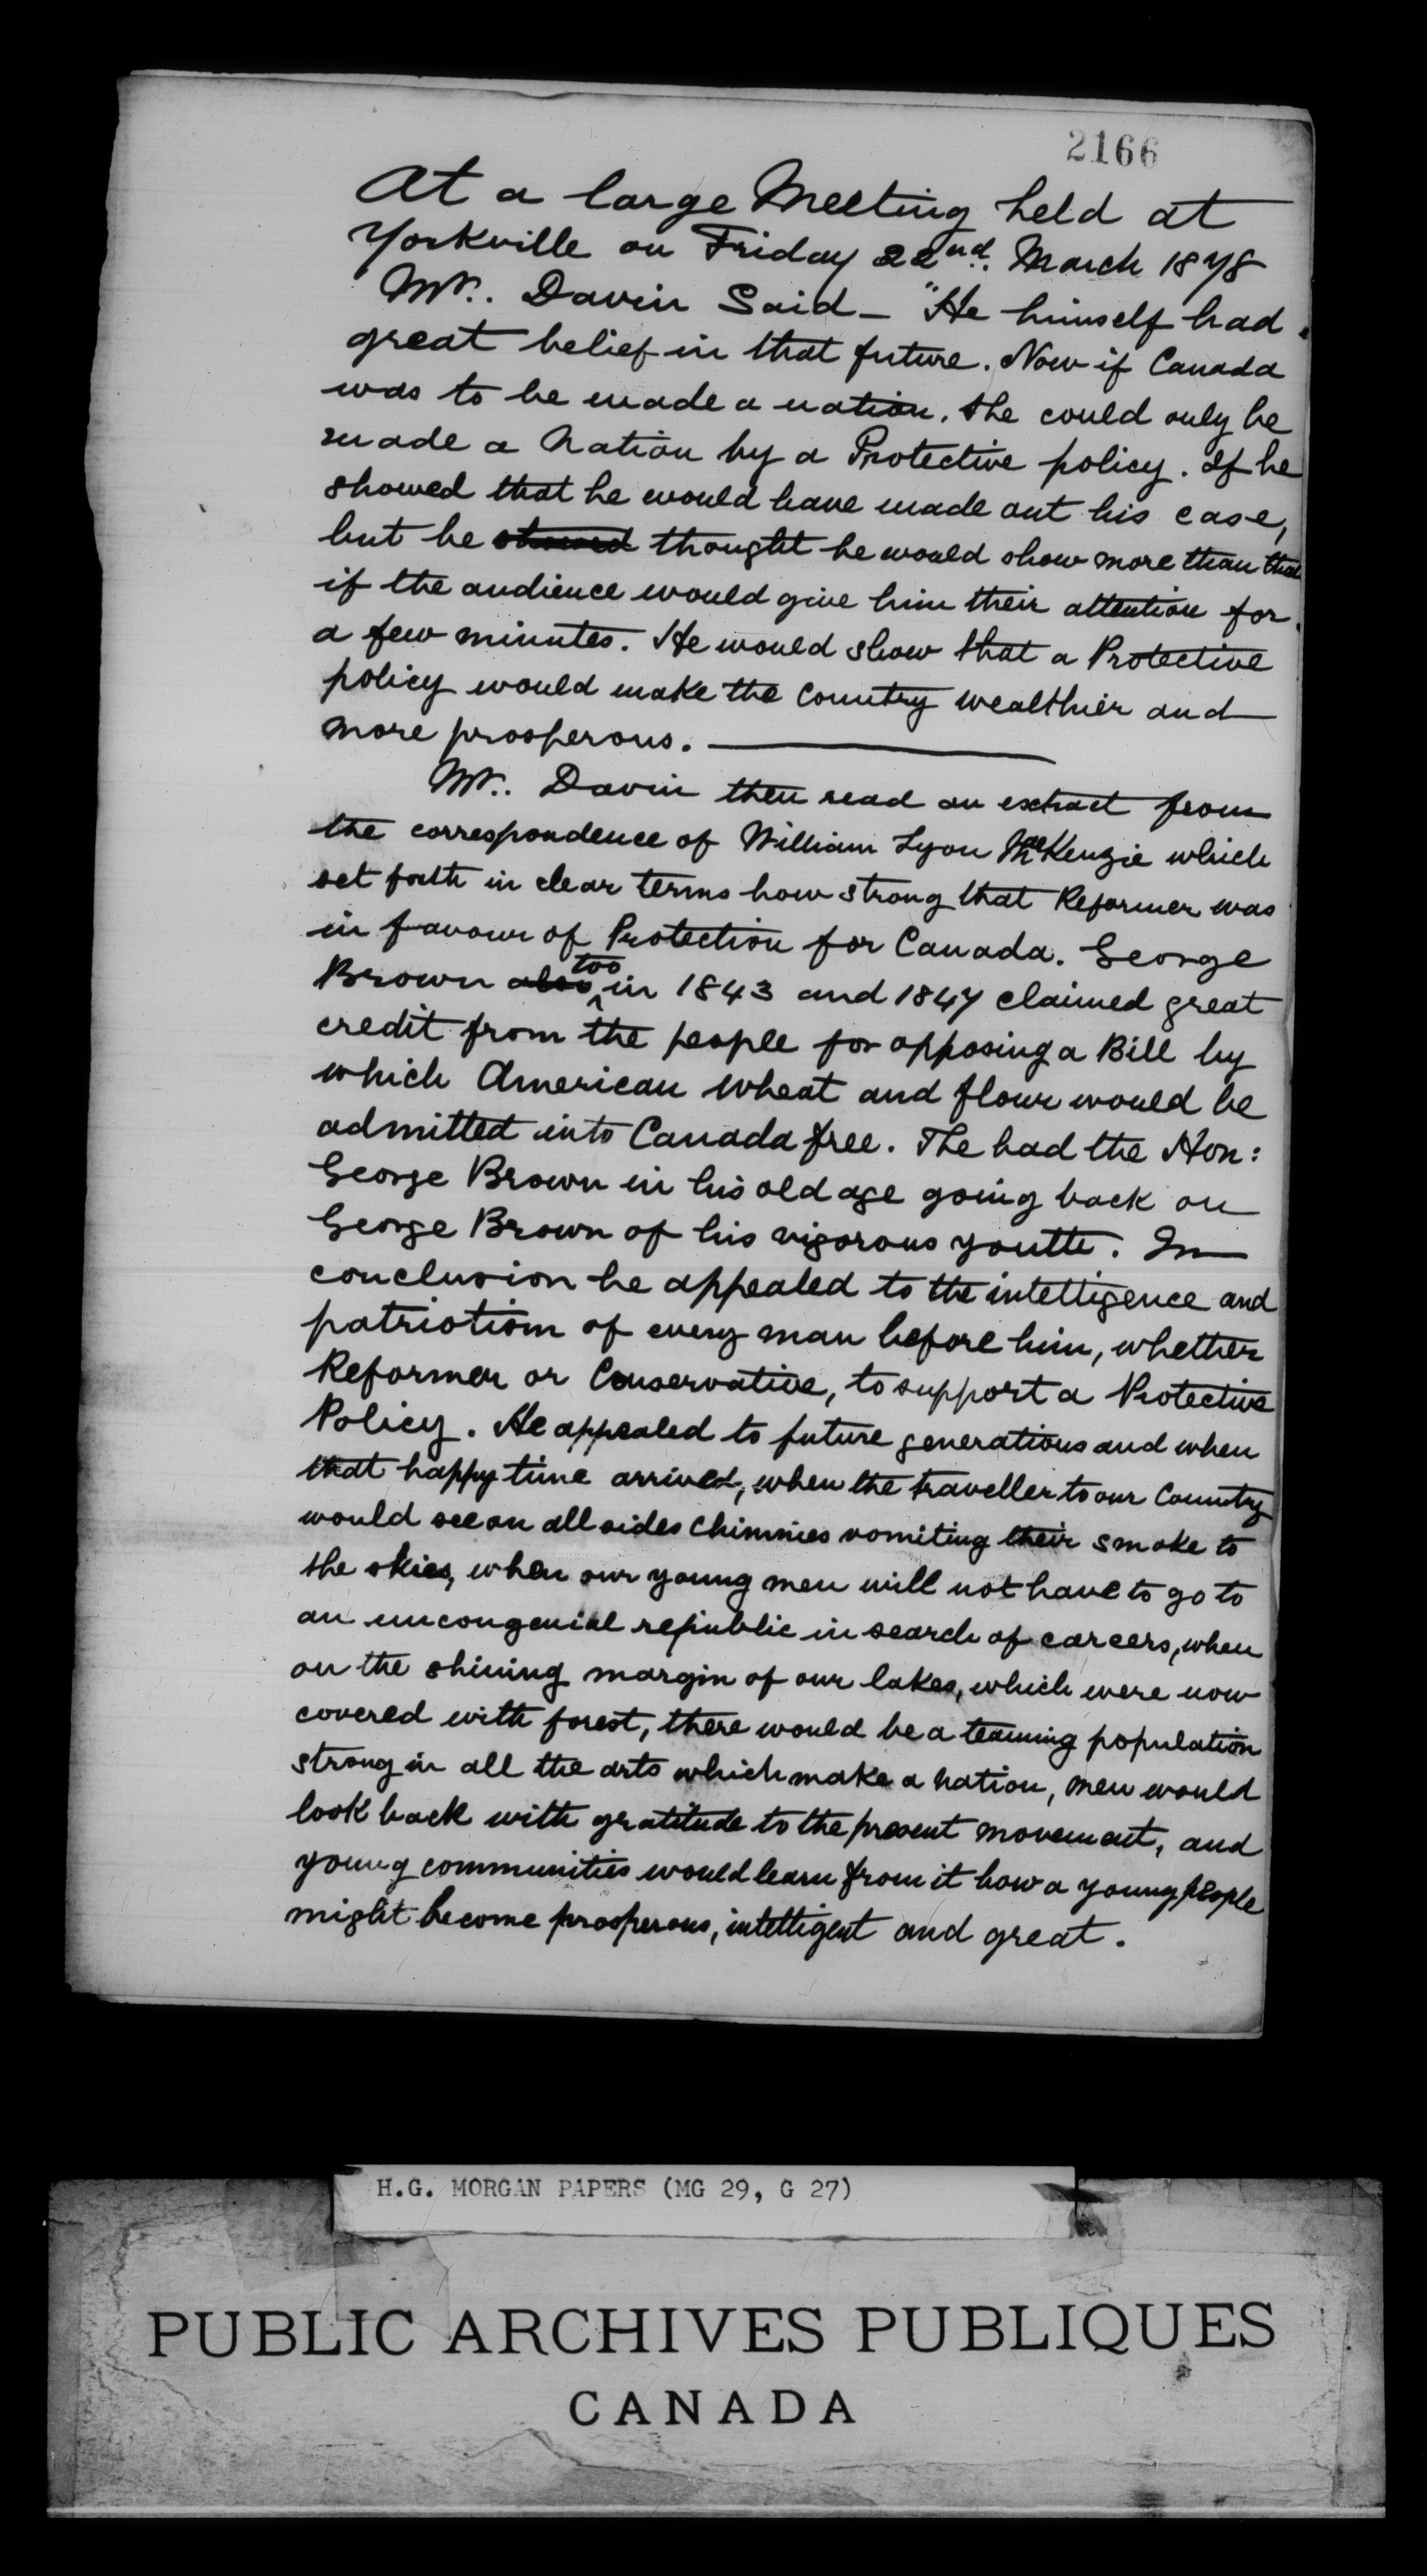 2166
At a large Meeting held at
Yorkville on Friday 22nd. March 1878
Mr. Davin Said - "He himself had
great belief in that future. Now if Canada
was to be made a nation, she could only be
made a nation by a Protective policy. If he
showed that he would have made out his case,
but he showed thought he would show more than that
if the audience would give him their attention for
a few minutes. He would show that a Protective
policy would make the Country wealthier and
more prosperous.
Mr. Davin then read an extract from
the correspondence of William Lyon McKenzie which
set forth in clear terms how strong that Reformer was
in favour of Protection for Canada. George
Brown also too in 1843 and 1847 claimed great
credit from the people for opposing a Bill by
which American wheat and flour would be
admitted into Canada free. The had the Hon:
George Brown in his old age going back on
George Brown of his vigorous youth. In
conclusion he appealed to the intelligence and
patriotism of every man before him, whether
Reformer or Conservative, to support a Protective
Policy. He appealed to future generations and when
that happy time arrived, when the traveller to our Country
would see on all sides chimnies vomiting their smoke to
the skies, when our young men will not have to go to
an uncongenial republic in search of careers, when
on the shining margin of our lakes, which were now
covered with forest, there would be a teaming population
strong in all the arts which make a nation, men would
look back with gratitude to the present movement, and
young communities would learn from it how a young people
might become prosperous, intelligent and great.
H.G. MORGAN PAPERS (MG 29, G 27)
PUBLIC ARCHIVES PUBLIQUES
CANADA